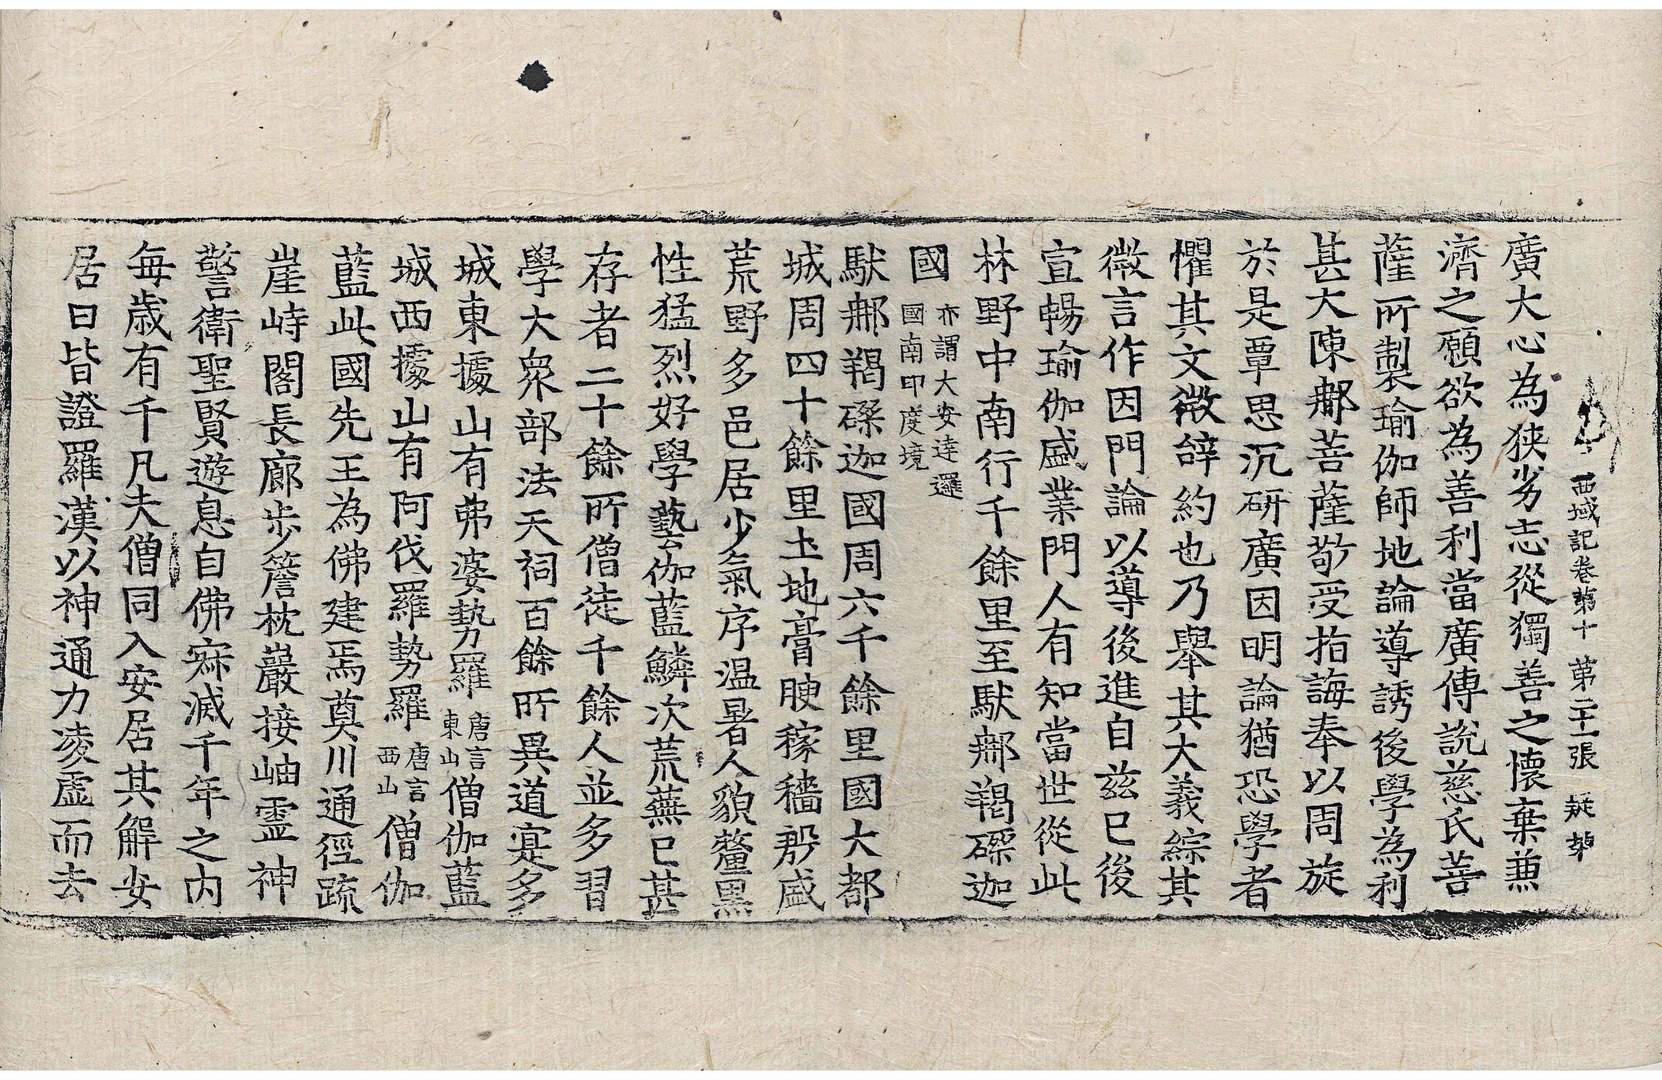 西域記卷第十 第二十一張
廣大心為狹劣志從獨善之懷棄兼
濟之願欲為善利當廣傳說慈氏菩
薩所製瑜伽師地論導誘後學為利
甚大陳那菩薩敬受指誨奉以周旋
於是覃思沉研廣因明論猶恐學者
懼其文微辝約也乃舉其大義綜其
微言作因門論以導後進自茲已後
宣暢瑜伽盛業門人有知當世從此
林野中南行千餘里至馱那羯磔迦
國 亦謂大安達邏國南印度境
馱那羯磔迦國周六千餘里國大都
城周四十餘里土地膏腴稼穡殷盛
荒野多邑居少氣序温暑人貌黧黑
性猛烈好學藝伽藍鱗次荒蕪已甚
存者二十餘所僧徒千餘人並多習
學大衆部法天祠百餘所異道寔多
城東據山有弗婆勢羅 唐言東山 僧伽藍
城西據山有阿伐羅勢羅 唐言西山 僧伽
藍此國先王為佛建焉奠川通徑疏
崖峙閣長廊步簷枕巖接岫霊神
警衛聖賢遊息自佛寂滅千年之內
每歲有千凡夫僧同入安居其解安
居日皆證羅漢以神通力凌虛而去